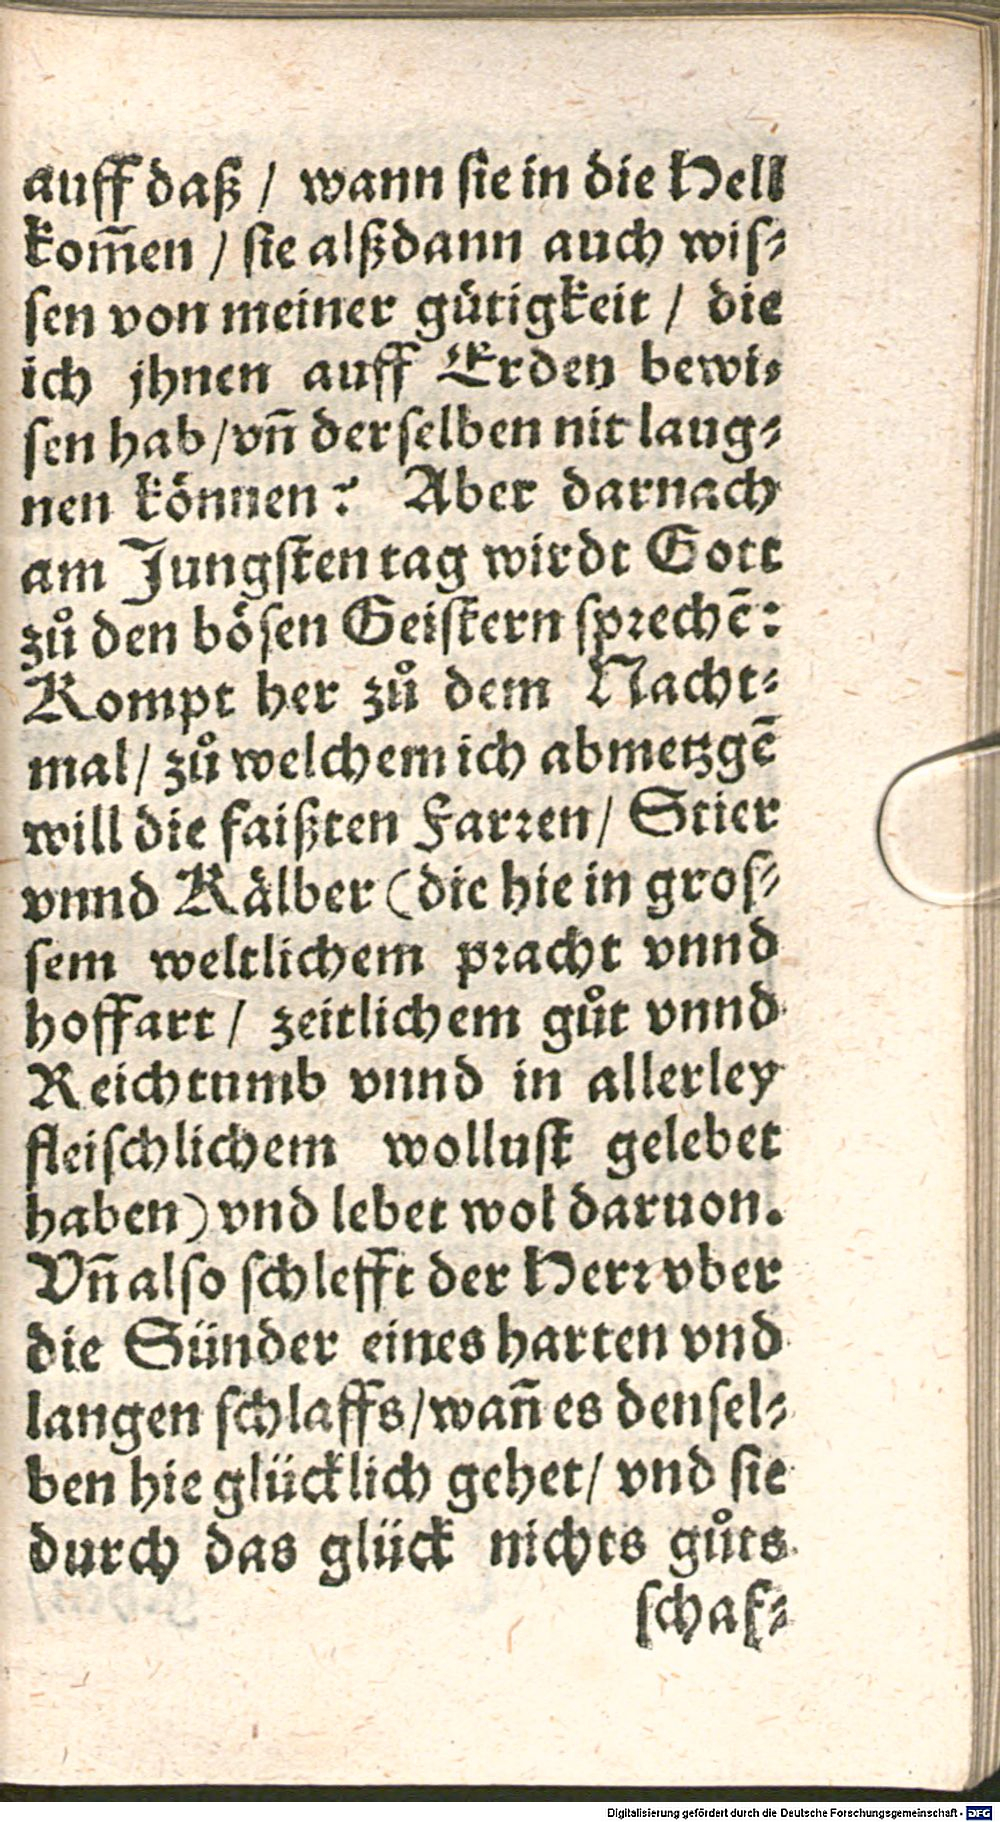 auff daß / wann sie in die Hell
kom̃en / sie alßdann auch wis⸗
sen von meiner gütigkeit / die
ich jhnen auff Erden bewi⸗
sen hab / vñ derselben nit laug⸗
nen können? Aber darnach
am Jungsten tag wirdt Gott
zů den bösen Geistern sprechẽ:
Kompt her zů dem Nacht⸗
mal / zů welchem ich abmetzgẽ
will die faißten Farꝛen / Stier
vnnd Kälber (die hie in gros⸗
sem weltlichem pꝛacht vnnd
hoffart / zeitlichem gůt vnnd
Reichtumb vnnd in allerley
fleischlichem wollust gelebet
haben) vnd lebet wol daruon.
Vñ also schlefft der Herꝛ vber
die Sünder eines harten vnd
langen schlaffs / wañ es densel⸗
ben hie glücklich gehet / vnd sie
durch das glück nichts gůts
schaf⸗
Digitalisierung gefördert durch die Deutsche Forschungsgemeinschaft - DFG